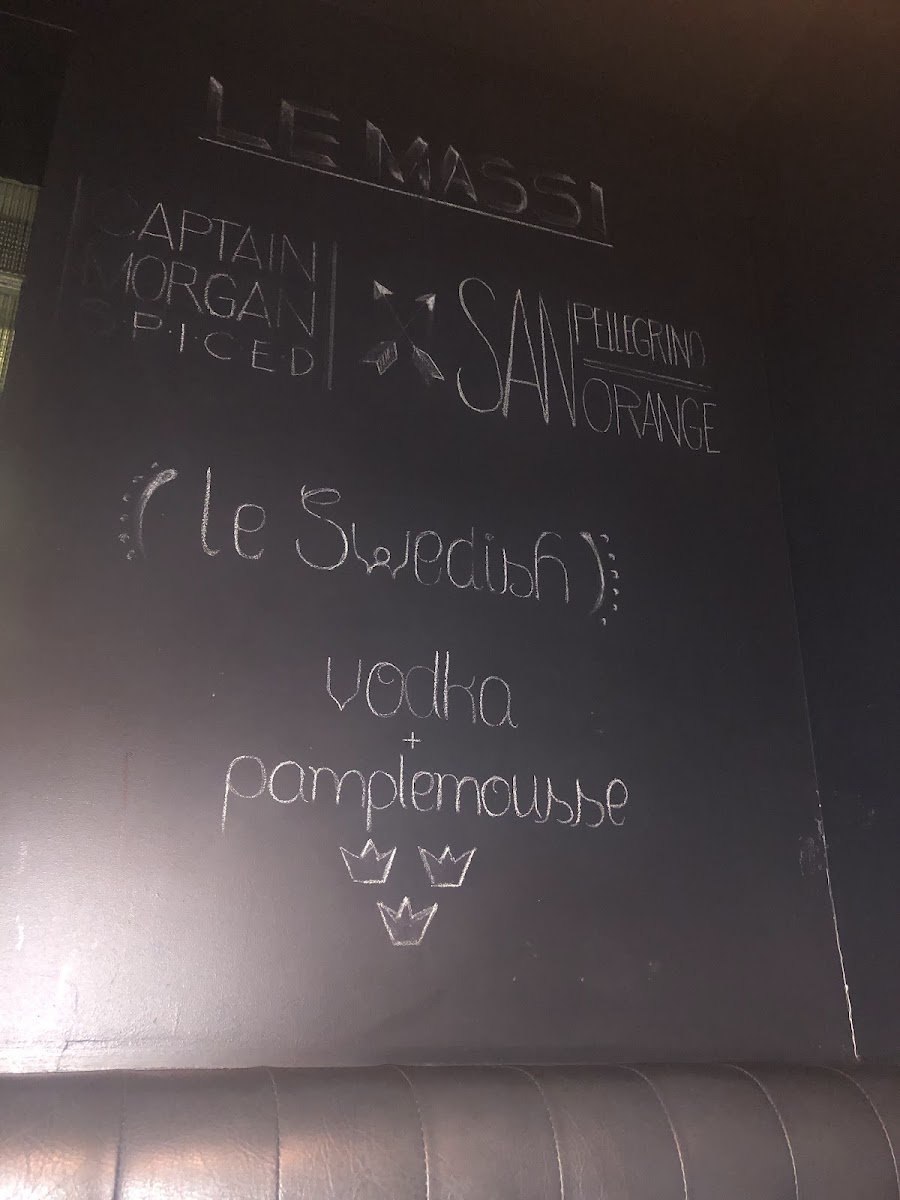 LE MASSI
CAPTAIN
MORGAN
S.P.I.C.E.D
SAN PELLEGRINO
ORANGE
(le Swedish)
vodka
+
pamplemousse